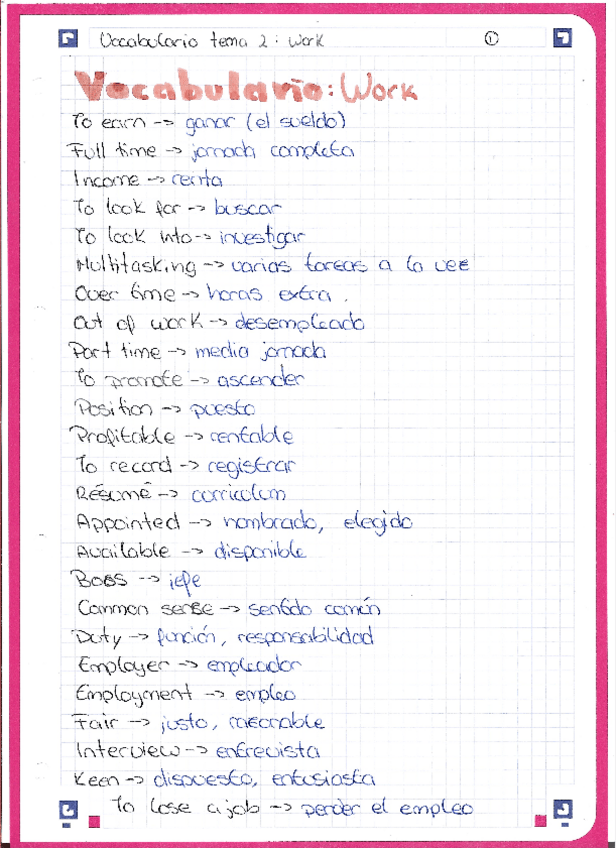 Vocabulario tema 2: Work 1
Vocabulario: Work
To earn -> ganar (el sueldo)
Full time -> jornada completa
Income -> renta
To look for -> buscar
To look into -> investigar
Multitasking -> varias tareas a la vez
Over time -> horas extra.
Out of work -> desempleado
Part time -> media jornada
To promote -> ascender
Position -> puesto
Profitable -> rentable
To record -> registrar
Résumé -> curriculum
Appointed -> nombrado, elegido
Available -> disponible
Boss -> jefe
Common sense -> sentido común
Duty -> función, responsabilidad
Employer -> empleador
Employment -> empleo
Fair -> justo, razonable
Interview -> entrevista
Keen -> dispuesto, entusiasta
To lose a job -> perder el empleo